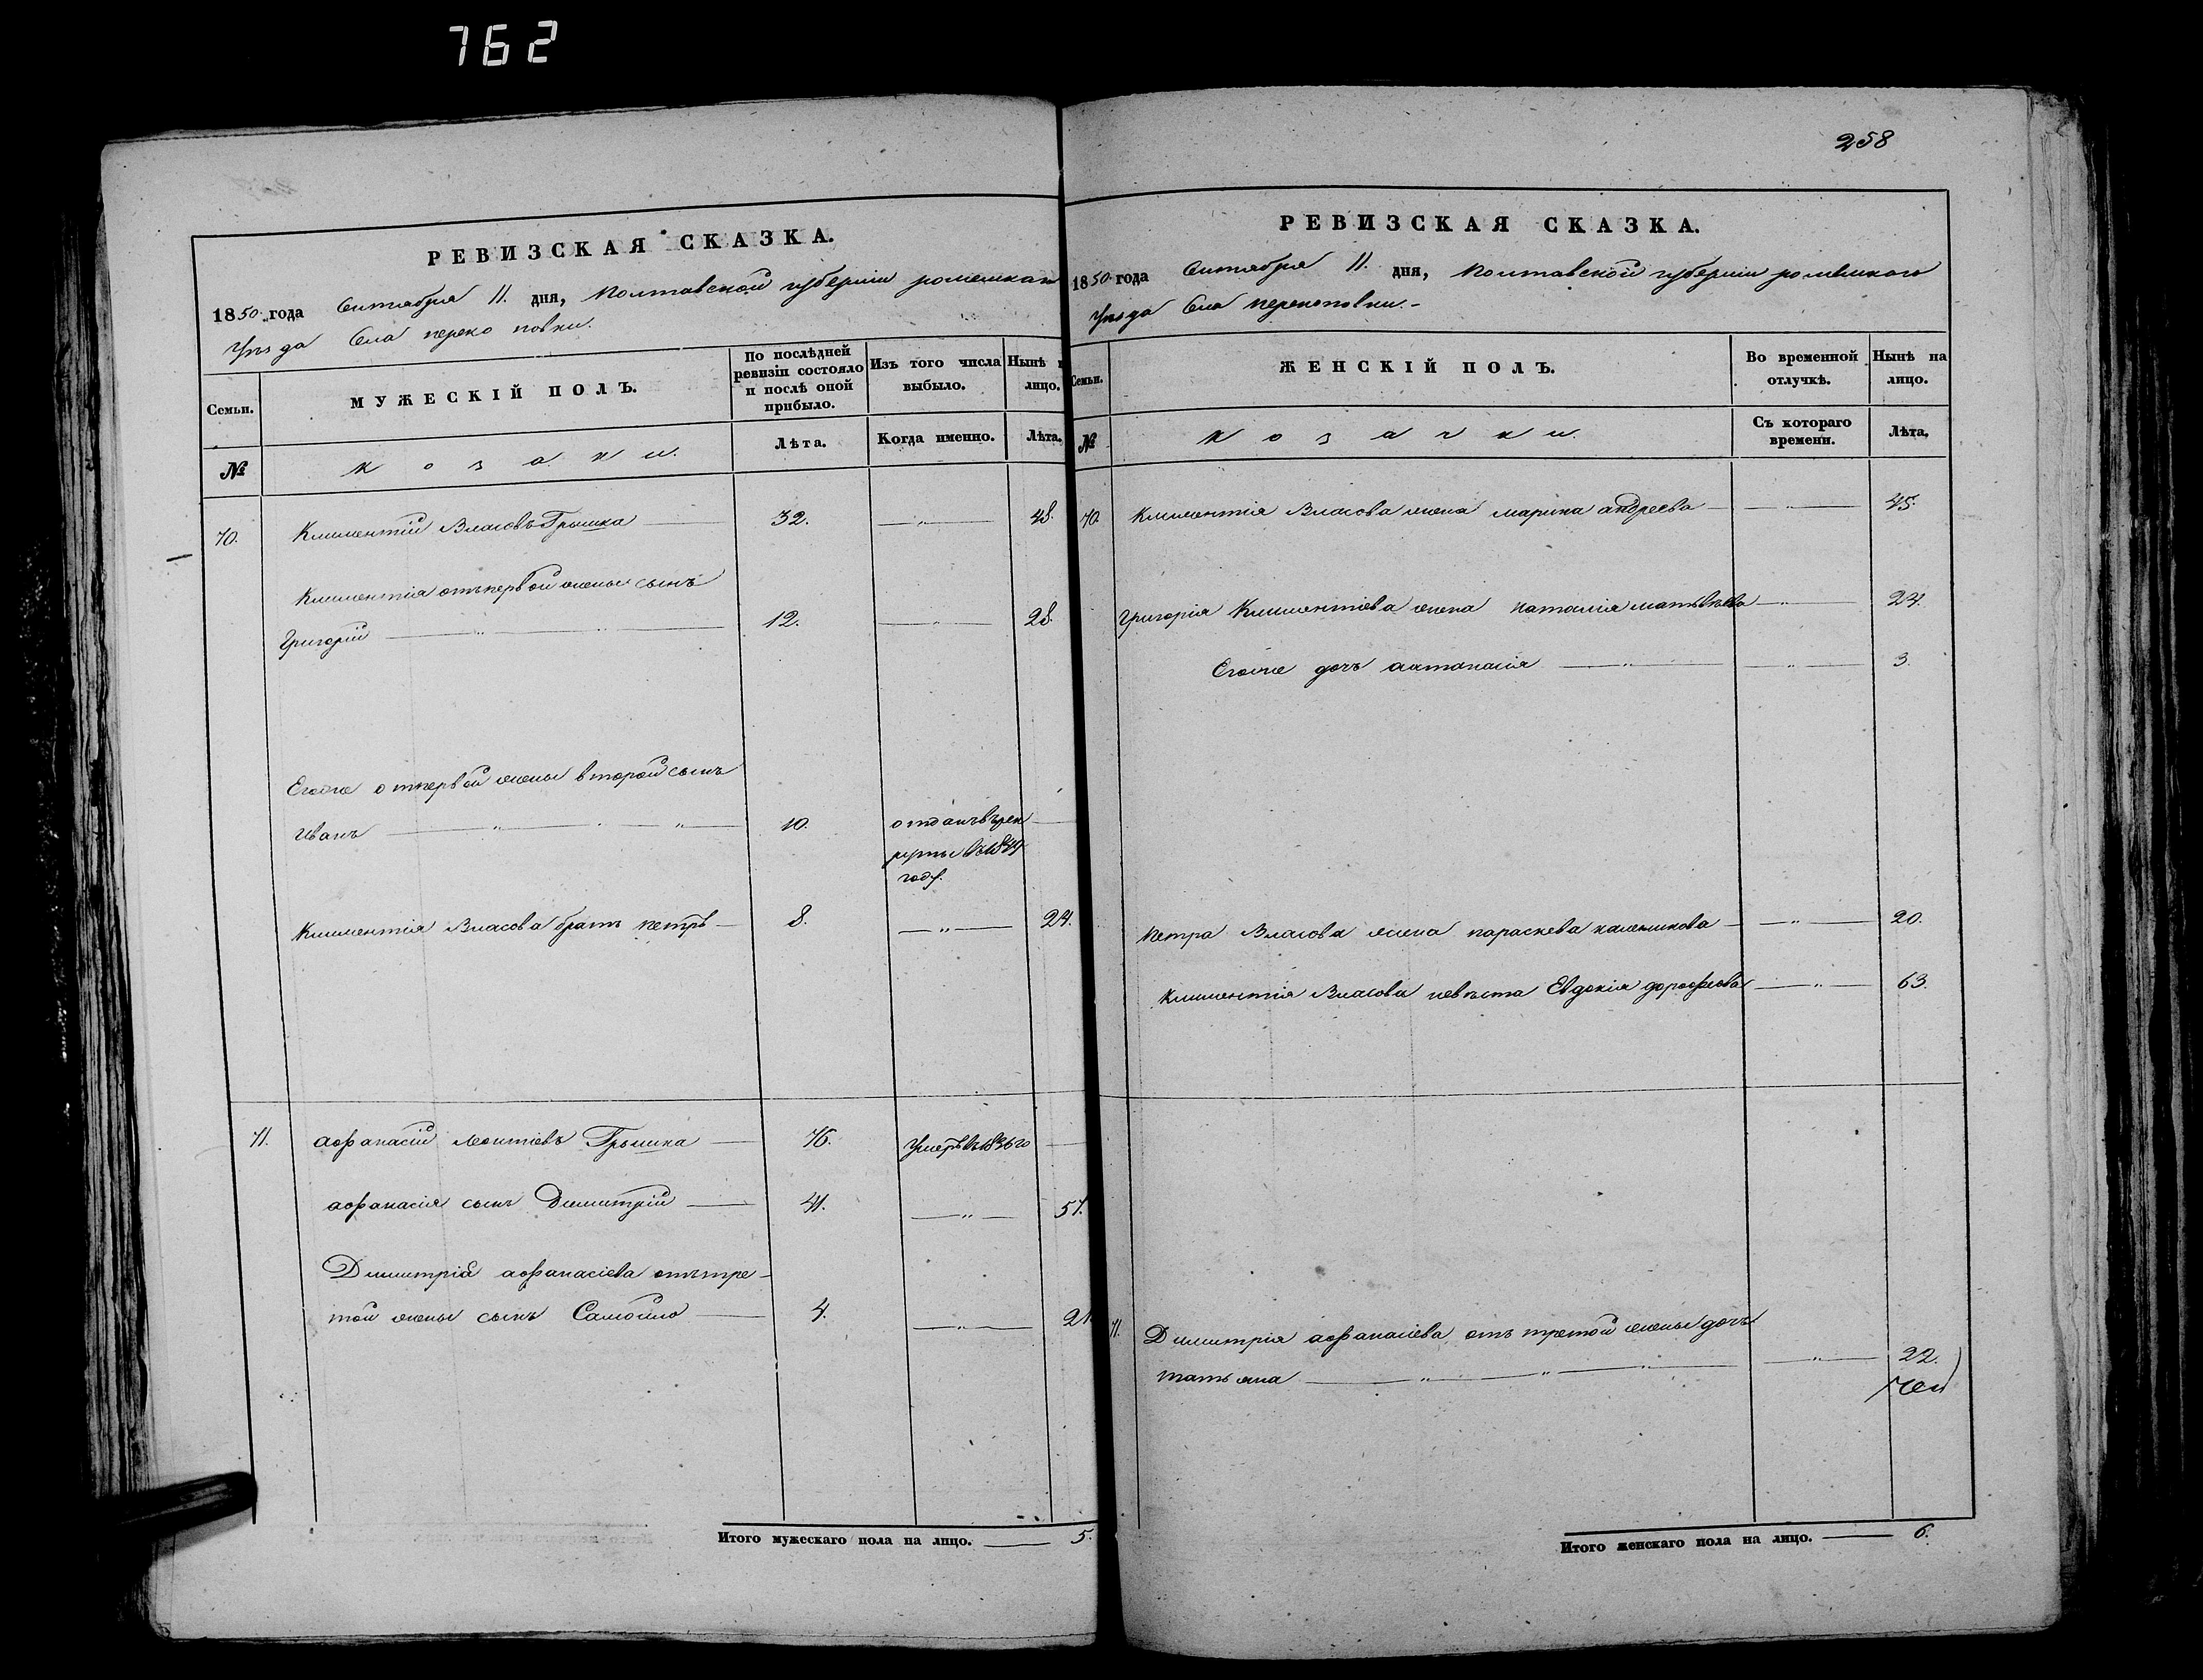 762
РЕВИЗСКАЯ СКАЗКА.
1850 года Сентября 11. дня, Полтавской губерніи роменскаго
Уѣзда Села перекоповки.
Семьи.
МУЖЕСКІЙ ПОЛЪ.
По послѣдней ревизіи состояло и послѣ оной прибыло.
Изъ того числа выбыло.
Нынѣ на лицо.
№
козаки.
Лѣта.
Когда именно.
Лѣта.
70. Климентій Власовъ Грышка — 32. — „ — 48.
Климентія отъ первой жены сынъ
Григорій — „ — „ — 12. — „ — 28.
Егоже от первой жены второй сынъ
Иванъ — „ — „ — 10. отданъ в рек
руты въ 1849
году.
Климентія Власова братъ петръ — 8. — „ — 24.
71. афанасій леонтіевъ Грышка — 76. Умеръ въ 1836 го —
афанасія сынъ Димитрій — 41. — „ — 57.
Димитрія афанасіева отъ тре-
той жены сынъ Самойло — 4. — „ — 21
Итого мужескаго пола на лицо. — 5.
258
РЕВИЗСКАЯ СКАЗКА.
1850 года Сентября 11. дня, Полтавской губерніи роменского
Уѣзда Села перекоповки.-
Семьи.
ЖЕНСКІЙ ПОЛЪ.
Во временной отлучкѣ.
Нынѣ на лицо.
№
козачки.
Съ котораго времени.
Лѣта.
70. Климентія Власова жена марина андреева — „ — 45.
Григорія Климентіева жена наталія матвѣева — „ — 24.
Егоже дочь анастасія — „ — „ — 3.
петра Власова жена параскева каленикова — „ — 20.
Климентія Власова невѣста Евдокія дорофеева — „ — 63.
71. Димитрія афанасіева отъ третой жены дочь
татьяна — „ — „ — „ — 22.
Итого женскаго пола на лицо. — 6.